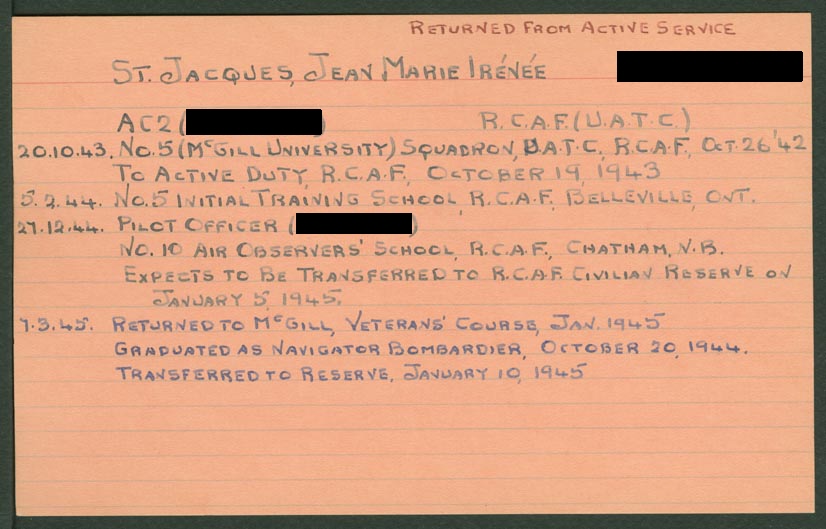 RETURNED FROM ACTIVE SERVICE
ST. JACQUES, JEAN MARIE IRÉNÉE
AC2 ( ) R.C.A.F. (U.A.T.C.)
20.10.43. No. 5 (McGILL UNIVERSITY) SQUADRON, U.A.T.C., R.C.A.F., OCT. 26 '42
TO ACTIVE DUTY, R.C.A.F., OCTOBER 19, 1943
5.2.44. No. 5 INITIAL TRAINING SCHOOL, R.C.A.F., BELLEVILLE, ONT.
27.12.44. PILOT OFFICER ( )
No. 10 AIR OBSERVERS' SCHOOL, R.C.A.F., CHATHAM, N.B.
EXPECTS TO BE TRANSFERRED TO R.C.A.F. CIVILIAN RESERVE ON
JANUARY 5, 1945.
7.3.45. RETURNED TO McGILL, VETERANS' COURSE, JAN. 1945
GRADUATED AS NAVIGATOR BOMBARDIER, OCTOBER 20, 1944.
TRANSFERRED TO RESERVE, JANUARY 10, 1945